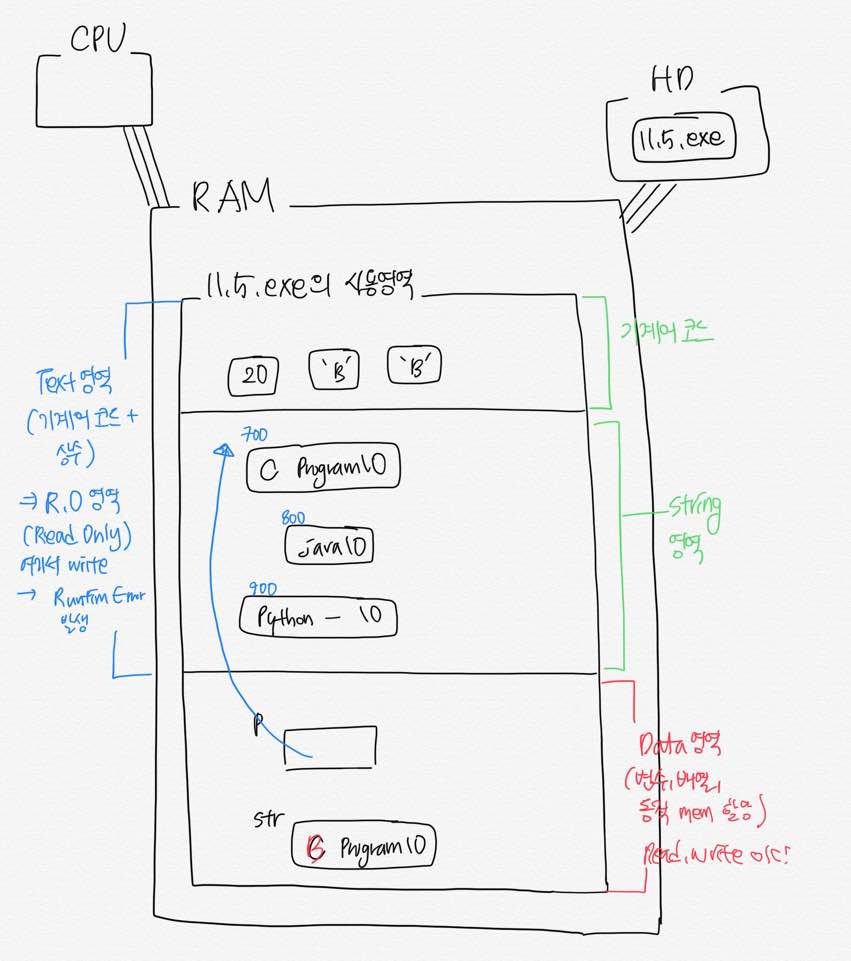 CPU
HD
11.5.exe
RAM
11.5.exe의 사용영역
기계어 코드
20
'B'
'B'
Text 영역
(기계어 코드 +
상수)
⇒ R.O 영역
(Read Only)
여기서 write
→ Runtim Error
발생
700
C Program\0
800
java\0
900
Python — \0
string
영역
P
Data 영역
(변수, 배열,
동적 mem 할당)
Read, write OK!
str
B Program\0